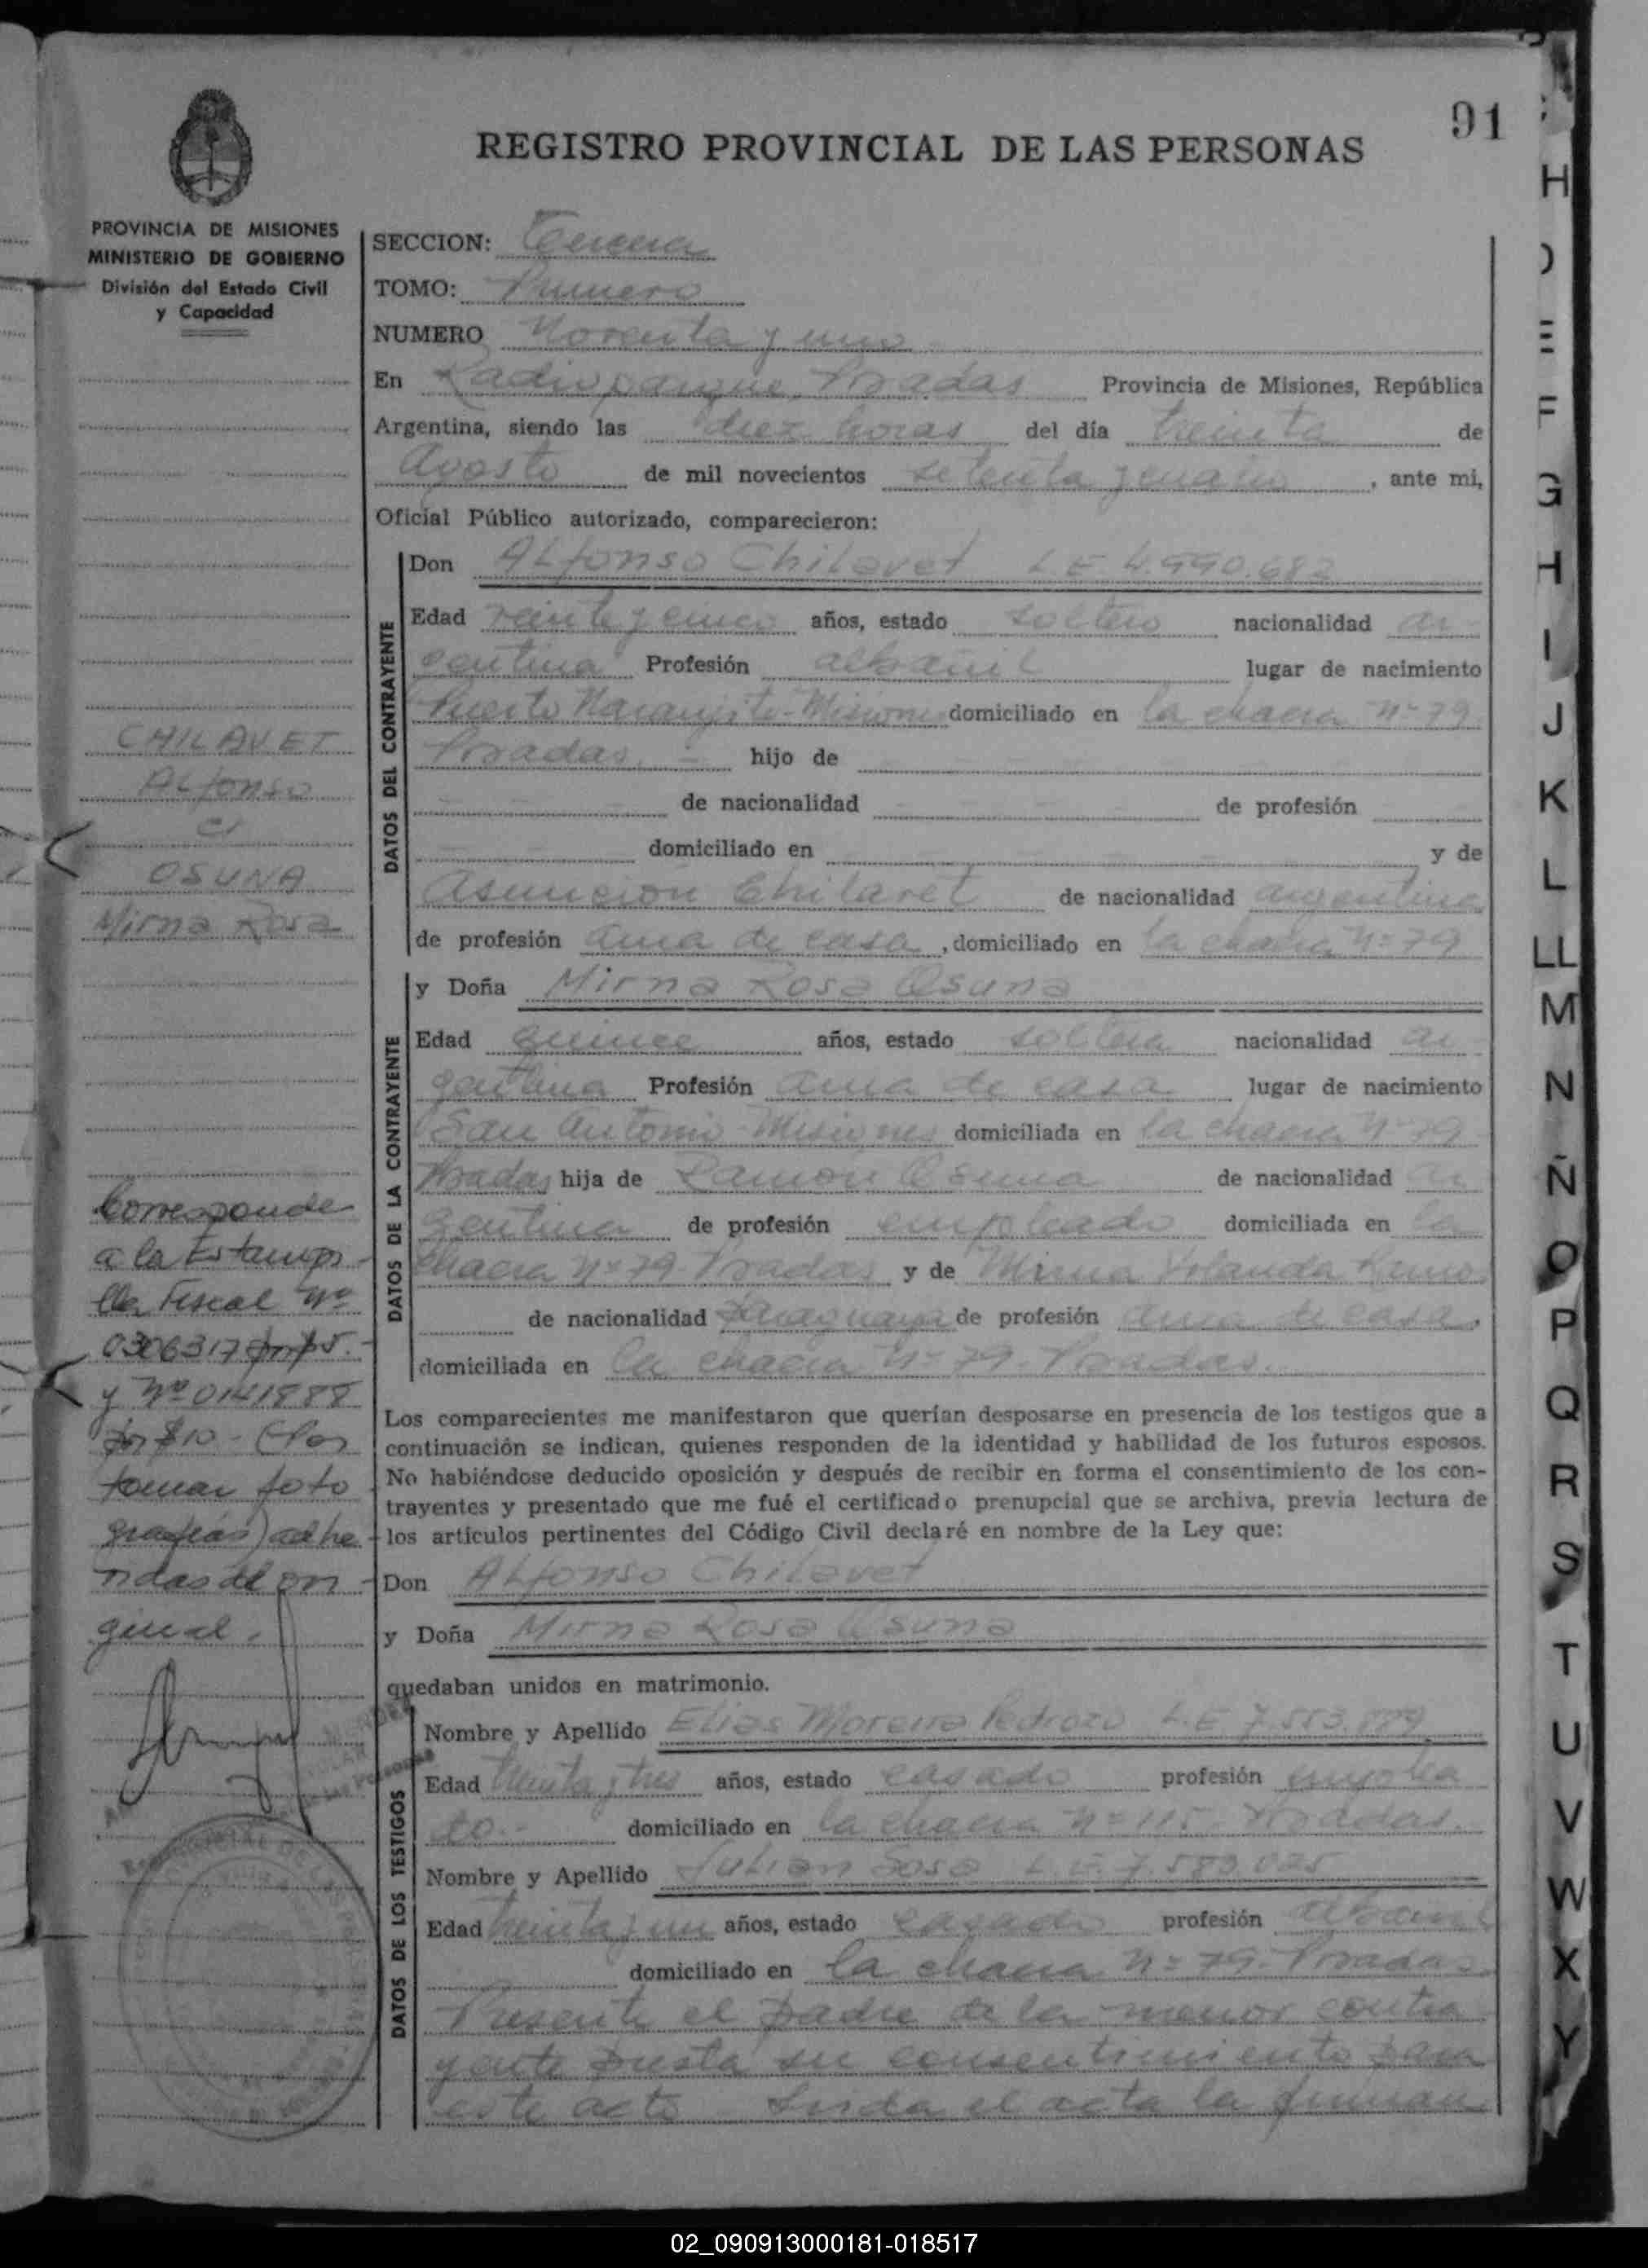 91
REGISTRO PROVINCIAL DE LAS PERSONAS
PROVINCIA DE MISIONES
MINISTERIO DE GOBIERNO
División del Estado Civil
y Capacidad
SECCION: Tercera
TOMO: Primero
NUMERO Noventa y uno
En Radioparque, Posadas Provincia de Misiones, República
Argentina, siendo las diez horas del día treinta de
Agosto de mil novecientos setenta y cuatro, ante mi,
Oficial Público autorizado, comparecieron:
DATOS DEL CONTRAYENTE
Don Alfonso Chilavet L.E 4.990.682
Edad veinte y cinco años, estado soltero nacionalidad ar-
gentina Profesión albañil lugar de nacimiento
Puerto Naranjito-Misiones domiciliado en la chacra Nº 79
Posadas. - hijo de
de nacionalidad de profesión
domiciliado en y de
Asunción Chilavet de nacionalidad argentina
de profesión ama de casa, domiciliado en la chacra Nº 79
DATOS DE LA CONTRAYENTE
y Doña Mirna Rosa Osuna
Edad quince años, estado soltera nacionalidad ar-
gentina Profesión ama de casa lugar de nacimiento
San Antonio-Misiones domiciliada en la chacra Nº 79
Posadas hija de Ramón Osuna de nacionalidad ar
gentina de profesión empleado domiciliada en la
chacra Nº 79-Posadas y de Mirna Yolanda
de nacionalidad paraguaya de profesión ama de casa,
domiciliada en la chacra Nº 79. Posadas.
Los comparecientes me manifestaron que querían desposarse en presencia de los testigos que a
continuación se indican, quienes responden de la identidad y habilidad de los futuros esposos.
No habiéndose deducido oposición y después de recibir en forma el consentimiento de los con-
trayentes y presentado que me fué el certificado prenupcial que se archiva, previa lectura de
los artículos pertinentes del Código Civil declaré en nombre de la Ley que:
Don Alfonso Chilavet
y Doña Mirna Rosa Osuna
quedaban unidos en matrimonio.
DATOS DE LOS TESTIGOS
Nombre y Apellido Elias Moreira Pedrozo L.E 7.553.889
Edad treinta y tres años, estado casado profesión emplea
do.- domiciliado en la chacra Nº 115. Posadas.
Nombre y Apellido Julian Sosa L.E 7.589.025
Edad treinta y un años, estado casado profesión albañil
domiciliado en la chacra Nº 79. Posadas.
Presente el padre de la menor contra
yente presta su consentimiento para
este acto. Leida el acta la firman
CHILAVET
Alfonso
c/
OSUNA
Mirna Rosa
Corresponde
a la Estampi-
lla Fiscal Nº
0306317 por $ 5.-
y Nº 0141988
por $ 10 - (Por
tomar foto
grafías) adhe
ridas al ori
ginal.
H
I
J
K
L
LL
M
N
Ñ
O
P
Q
R
S
T
U
V
W
X
Y
02_090913000181-018517